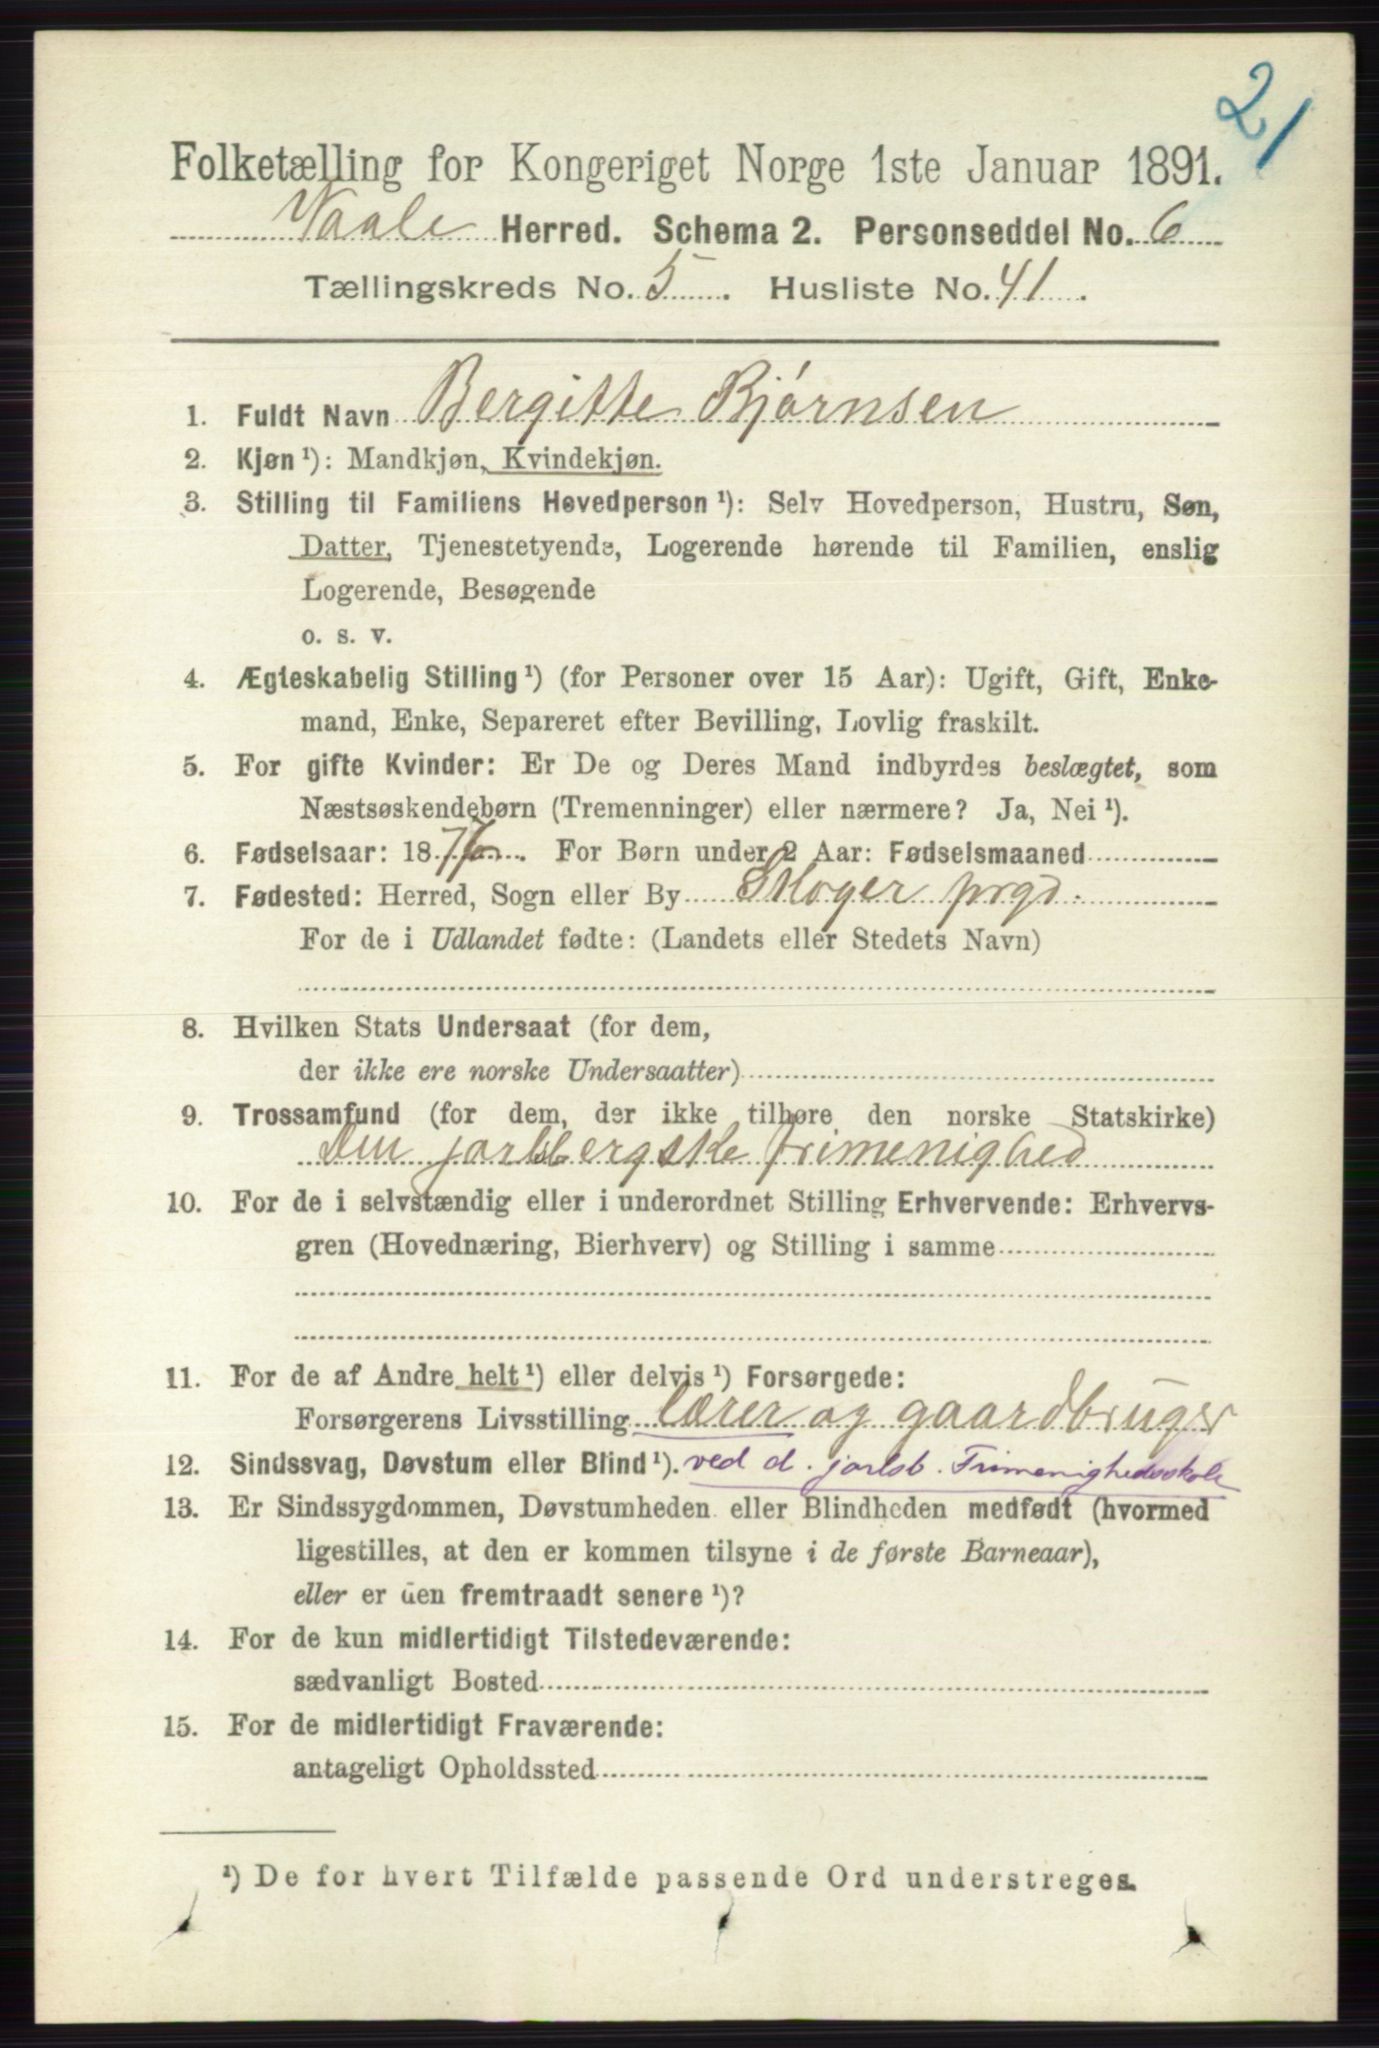 21
Folketælling for Kongeriget Norge 1ste Januar 1891.
Vaale Herred. Schema 2. Personseddel No. 6
Tællingskreds No. 5. Husliste No. 41.
1. Fuldt Navn Bergitte Bjørnsen
2. Kjøn ¹): Mandkjøn, Kvindekjøn.
3. Stilling til Familiens Hovedperson ¹): Selv Hovedperson, Hustru, Søn,
Datter, Tjenestetyende, Logerende hørende til Familien, enslig
Logerende, Besøgende
o. s. v.
4. Ægteskabelig Stilling ¹) (for Personer over 15 Aar): Ugift, Gift, Enke-
mand, Enke, Separeret efter Bevilling, Lovlig fraskilt.
5. For gifte Kvinder: Er De og Deres Mand indbyrdes beslægtet, som
Næstsøskendebørn (Tremenninger) eller nærmere? Ja, Nei ¹).
6. Fødselsaar: 1877. For Børn under 2 Aar: Fødselsmaaned
7. Fødested: Herred, Sogn eller By Skoger prgd.
For de i Udlandet fødte: (Landets eller Stedets Navn)
8. Hvilken Stats Undersaat (for dem,
der ikke ere norske Undersaatter)
9. Trossamfund (for dem, der ikke tilhøre den norske Statskirke)
Den jarlsbergske frimenighed
10. For de i selvstændig eller i underordnet Stilling Erhvervende: Erhvervs-
gren (Hovednæring, Bierhverv) og Stilling i samme
11. For de af Andre helt ¹) eller delvis ¹) Forsørgede:
Forsørgerens Livsstilling lærer og gaardbruger
12. Sindssvag, Døvstum eller Blind ¹). ved d. jarlsb. Frimenighedsskole
13. Er Sindssygdommen, Døvstumheden eller Blindheden medfødt (hvormed
ligestilles, at den er kommen tilsyne i de første Barneaar),
eller er den fremtraadt senere ¹)?
14. For de kun midlertidigt Tilstedeværende:
sædvanligt Bosted
15. For de midlertidigt Fraværende:
antageligt Opholdssted
¹) De for hvert Tilfælde passende Ord understreges.